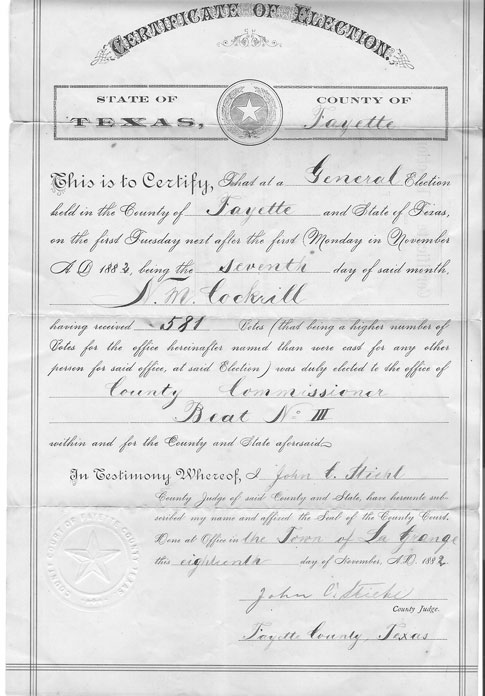 CERTIFICATE OF ELECTION.
STATE OF TEXAS,
COUNTY OF Fayette
This is to Certify, That at a General Election
held in the County of Fayette and State of Texas,
on the first Tuesday next after the first Monday in November
A.D. 1882, being the Seventh day of said month,
N. M. Cockrill
having received 581 Votes (that being a higher number of
Votes for the office hereinafter named than were cast for any other
person for said office, at said Election) was duly elected to the office of
County Commissioner
Beat No III
within and for the County and State aforesaid
In Testimony Whereof, I John C. Stiehl
County Judge of said County and State, have hereunto sub-
scribed my name and affixed the Seal of the County Court.
Done at Office in the Town of La Grange
this eighteenth day of November, A.D. 1882.
John C. Stiehl
County Judge.
Fayette County, Texas
COUNTY COURT OF FAYETTE COUNTY TEXAS